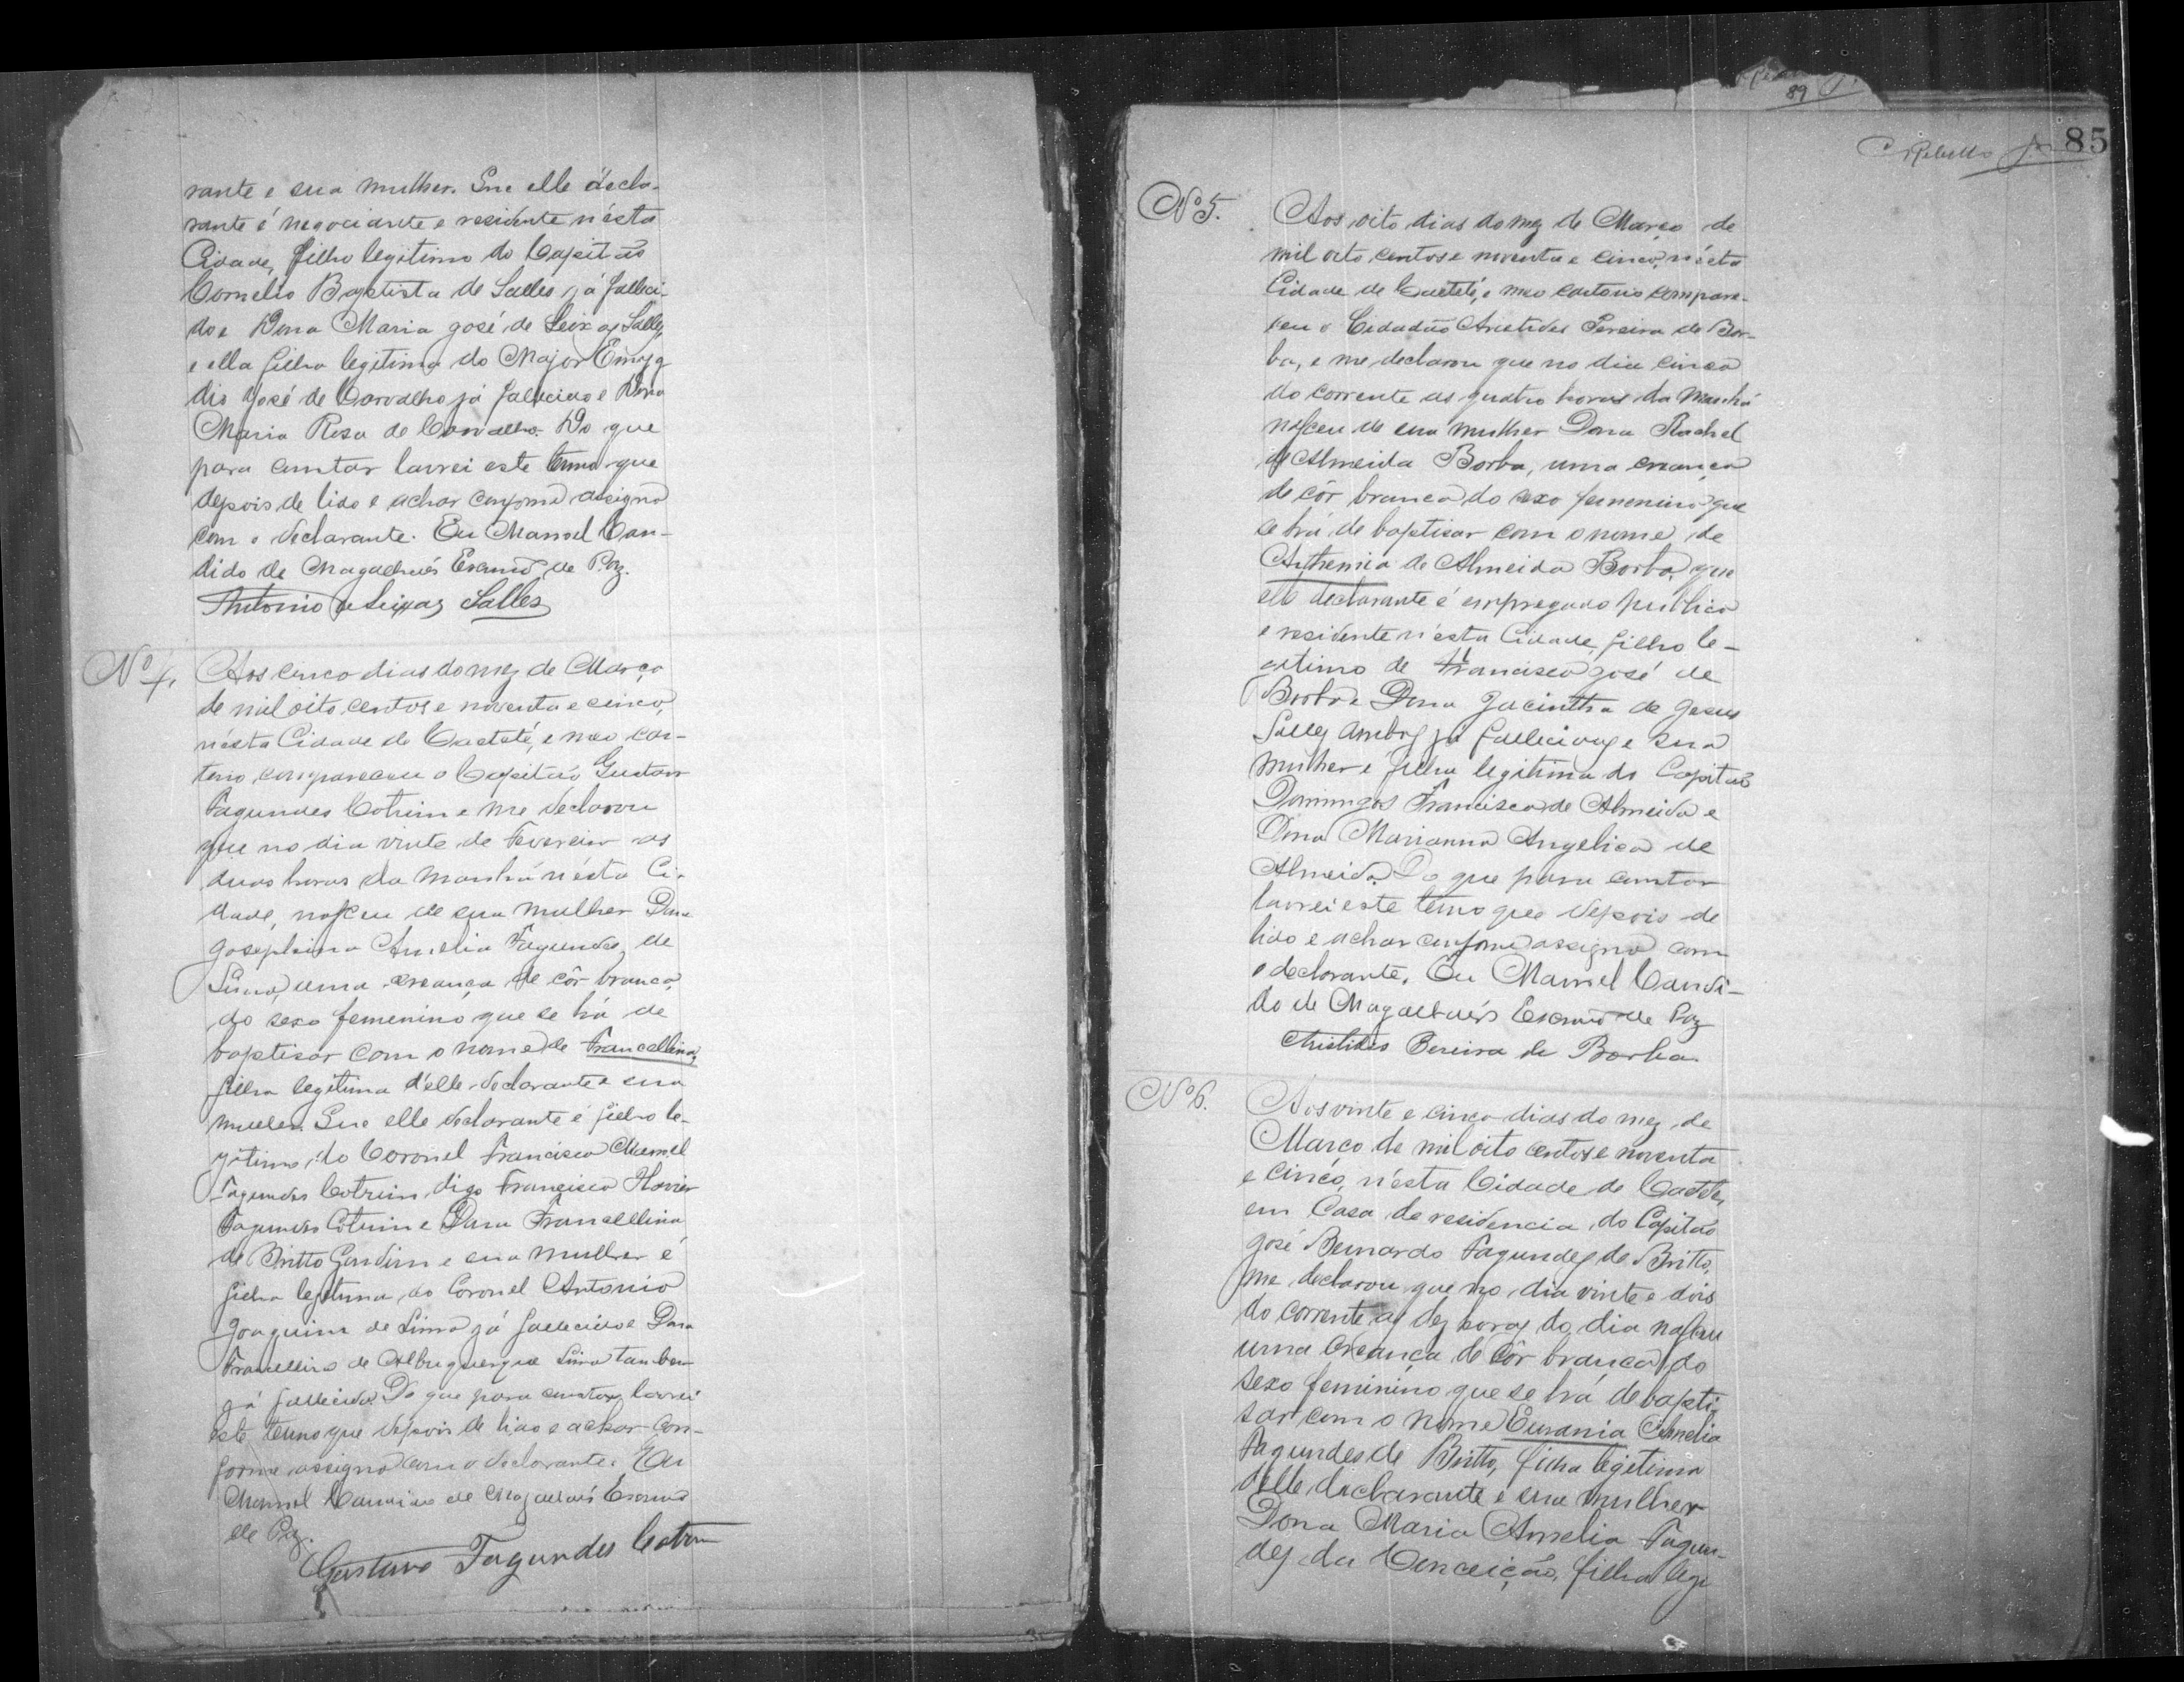 rante e sua mulher. Que elle decla-
rante é negociante e residente n'ésta
Cidade, filho legitimo do Capitão
Cornelio Baptista de Salles, já falleci-
do e Dona Maria José de Seixas Salles,
e ella filha legitima do Major Emyg
dio José de Carvalho já fallecido e Dona
Maria Rosa de Carvalho. Do que
para constar lavrei este termo que
depois de lido e achar conforme assigno
com o declarante. Eu Manoel Can-
dido de Magalhães Escrivão de Paz.
Antonio de Seixas Salles
Nº 4. Aos cinco dias do mez de Março
de mil oito centos e noventa e cinco,
n'ésta Cidade de Caeteté, e meo car-
torio, compareceu o Capitão Gustavo
Fagundes Cotrim e me declarou
que no dia vinte de Fevereiro as
duas horas da manhã n'ésta Ci-
dade, nasceu de sua mulher Dona
Josephina Amelia Fagundes de
Lima, uma creança de côr branca,
do sexo femenino que se há de
baptisar com o nome de Francellina,
filha legitima d'elle declarante e sua
mulher. Que elle declarante é filho le-
gitimo do Coronel Francisco Manoel
Fagundes Cotrim, digo Francisco Xavier
Fagundes Cotrim e Dona Francellina
de Britto Gondim e sua mulher é
filha legitima do Coronel Antonio
Joaquim de Lima já fallecido e Dona
Francellina de Albuquerque Lima tambem
já fallecida. Do que para constar lavrei
este termo que depois de lido e achar con-
forme assigno com o declarante. Eu
Manoel Candido de Magalhães Escrivão
de Paz.
Gustavo Fagundes Cotrim
89
Rebello
85
Nº 5. Aos oito dias do mez de Março de
mil oito centos e noventa e cinco, n'ésta
Cidade de Caeteté, e meo cartorio compare-
ceu o Cidadão Aristides Pereira de Bor-
ba, e me declarou que no dia cinco
do corrente as quatro horas da manhã
nasceu de sua mulher Dona Rachel
de Almeida Borba, uma creança
de côr branca do sexo femenino que
se há de baptisar com o nome de
Anthemia de Almeida Borba, que
elle declarante é empregado publico
e residente n'ésta Cidade, filho le-
gitimo de Francisco José de
Borba e Dona Jacintha de Jesus
Salles ambos já fallecidos e sua
mulher é filha legitima do Capitão
Domingos Francisco de Almeida e
Dona Marianna Angelica de
Almeida. Do que para constar
lavrei este termo que depois de
lido e achar conforme assigno com
o declarante. Eu Manoel Candi-
do de Magalhães Escrivão de Paz
Aristides Pereira de Borba
Nº 6. Aos vinte e cinco dias do mez de
Março de mil oito centos e noventa
e cinco, n'ésta Cidade de Caeteté,
em Casa de residencia do Capitão
José Bernardo Fagundes de Britto,
me declarou que no dia vinte e dois
do corrente as dez horas do dia nasceu
uma creança de côr branca do
sexo feminino que se há de bapti-
sar com o nome Eurania Amelia
Fagundes de Britto, filha legitima
delle declarante e sua mulher
Dona Maria Amelia Fagun-
des da Conceição, filha legi